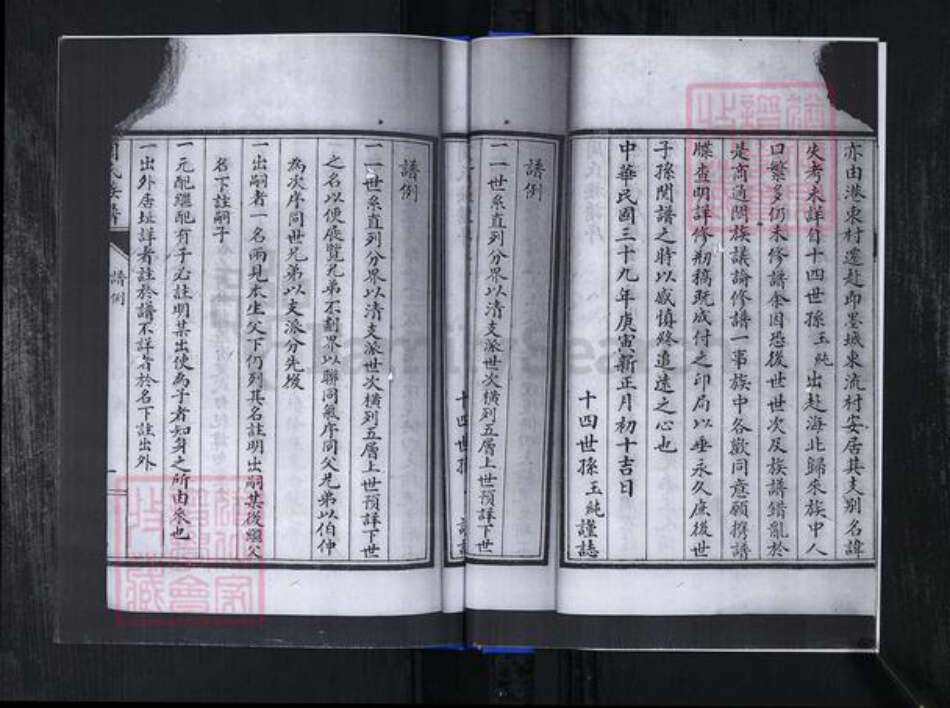 亦由港東村遷赴即墨城東流村安居其支別名諱
失考未詳自十四世孫玉純出赴海北歸來族中人
口繁多仍未修譜余因恐後世世次及族譜錯亂於
是商通闔族議論修譜一事族中各歡同意願携譜
牒查明詳修刱稿既成付之印局以垂永久庶後世
子孫閱譜之時以感慎終追遠之心也
中華民國三十九年庚寅新正月初十吉日
十四世孫玉純謹誌
譜例
一一世系直列分界以清支派世次橫列五層上世預詳下世
十四世孫
譜例
一一世系直列分界以清支派世次橫列五層上世預詳下世
之名以便展覽兄弟不劃界以聯同氣序同父兄弟以伯仲
為次序同世兄弟以支派分先後
一出嗣者一名兩見本生父下仍列其名註明出嗣某後繼父
名下註嗣子
一元配繼配有子必註明某出使為子者知身之所由來也
一出外居址詳者註於譜不詳者於名下註出外
譜例